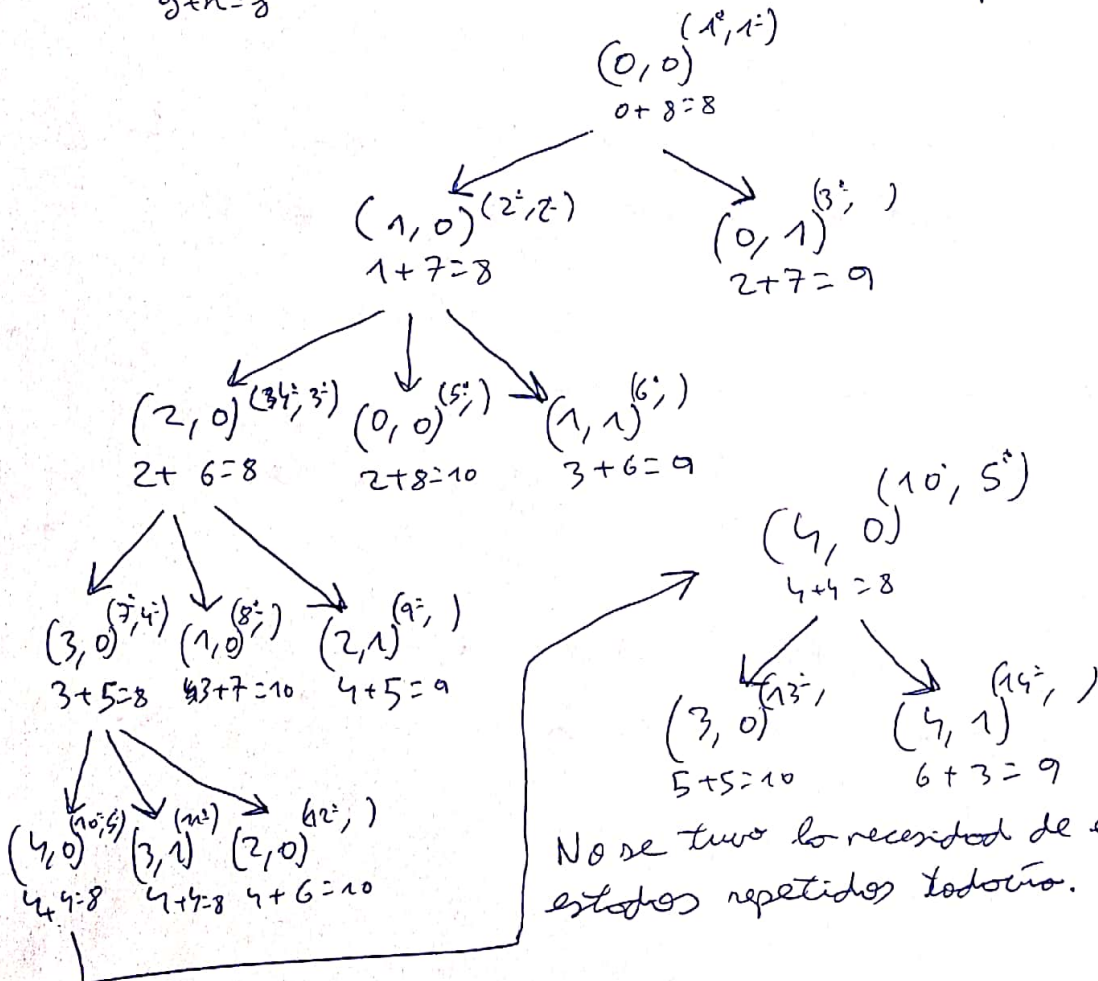 g+h=f
(0,0) (1º,1º)
0+8=8
(1,0) (2º,2º)
1+7=8
(0,1) (3º, )
2+7=9
(2,0) (4º,3º)
2+6=8
(0,0) (5º, )
2+8=10
(1,1) (6º, )
3+6=9
(3,0) (7º,4º)
3+5=8
(1,0) (8º, )
3+7=10
(2,1) (9º, )
4+5=9
(4,0) (10º,5º)
4+4=8
(3,1) (11º)
4+4=8
(2,0) (12º, )
4+6=10
(4,0) (10º,5º)
4+4=8
(3,0) (13º,
5+5=10
(4,1) (14º, )
6+3=9
No se tuvo la necesidad de
estados repetidos todavía.